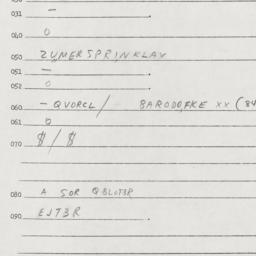 031 —
040 0
050 ZUMERSPRINKLAY
051 —
052 0
060 — QVORCL/ BARODOFKE XX (84
061 0
070 $/$
080 A SOR QBLOT3R
090 EJT3R